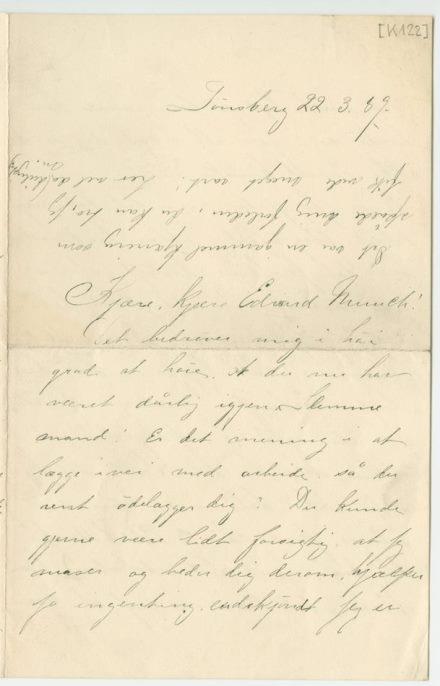 [K122]
Tönsberg 22. 3. 89.
Det var en gammel Kjærring som
spaade mig forleden, du kan tro, jeg
fik vide meget rart! Lev vel da,
Kjære, kjære Edvard Munch!
Det bedrøver mig i høi
grad at høre, at du nu har
været dårlig iggen, slemme
mand! Er det mening i at
lægge ivei med arbeide så du
rent ödelægger dig? Du kunde
gjerne være lidt forsigtig, at jeg
maser og beder dig derom, hjælper
jo ingenting, endskjöndt jeg er